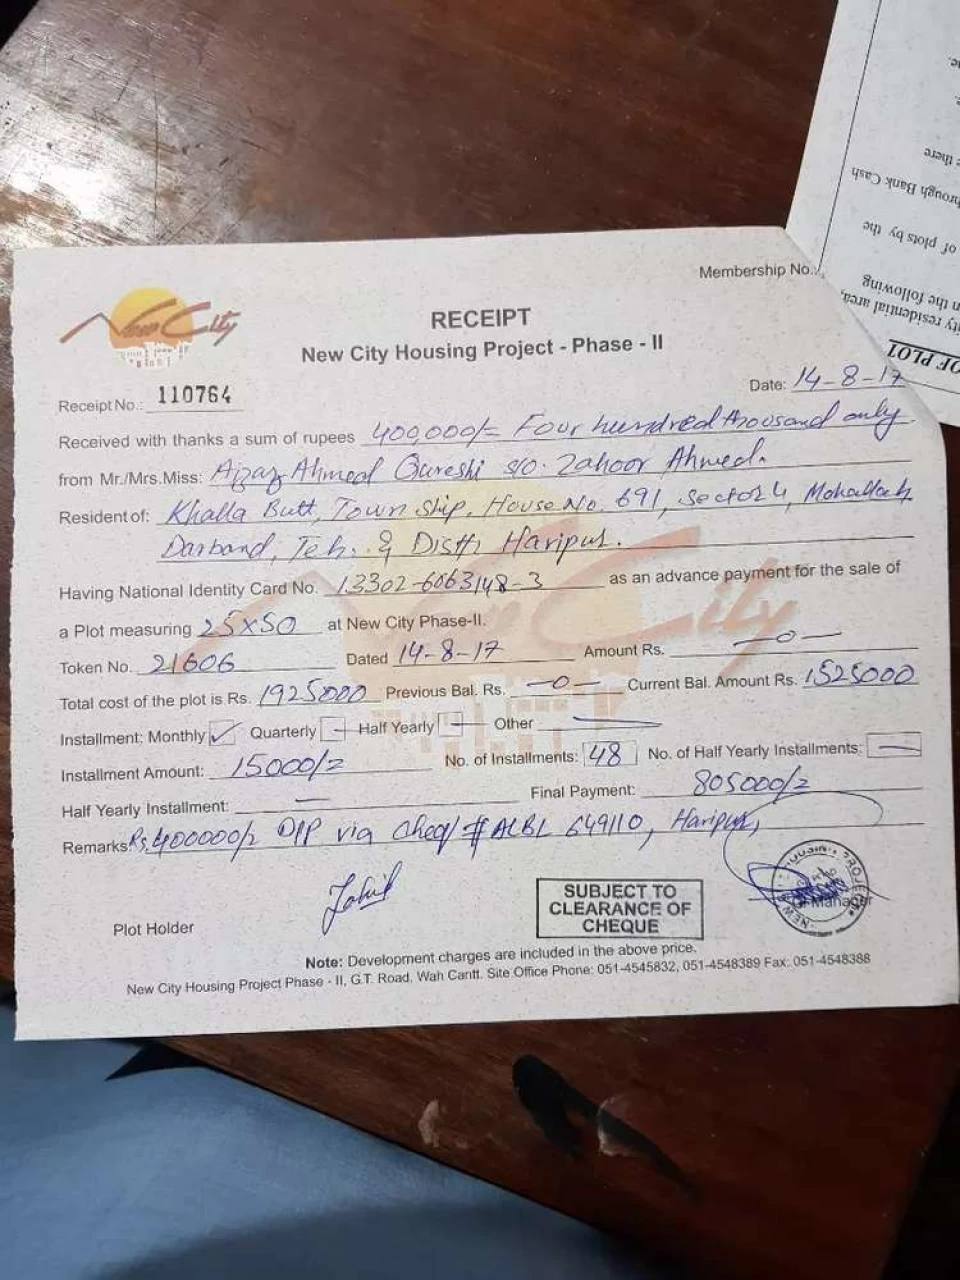 Membership No.
New City
RECEIPT
New City Housing Project - Phase - II
Receipt No.: 110764
Date: 14-8-17
Received with thanks a sum of rupees 400,000/= Four hundred thousand only
from Mr./Mrs.Miss: Aizaz Ahmed Qureshi S/O. Zahoor Ahmed.
Resident of: Khalla Butt, Town Ship, House No. 691, Sector 4, Mohallah
Darband, Teh. & Distt Haripur.
Having National Identity Card No. 13302-6063148-3 as an advance payment for the sale of
a Plot measuring 25x50 at New City Phase-II.
Token No. 21606 Dated 14-8-17 Amount Rs. —0—
Total cost of the plot is Rs. 1925000 Previous Bal. Rs. —0— Current Bal. Amount Rs. 1525000
Installment: Monthly ✓ Quarterly — Half Yearly — Other —
Installment Amount: 15000/= No. of Installments: 48 No. of Half Yearly Installments: —
Half Yearly Installment: — Final Payment: 805000/=
Remarks: Rs. 400000/= D/P via Cheq # ALBL 649110, Haripur,
Plot Holder
SUBJECT TO
CLEARANCE OF
CHEQUE
Manager
Note: Development charges are included in the above price.
New City Housing Project Phase - II, G.T. Road, Wah Cantt. Site Office Phone: 051-4545832, 051-4548389 Fax: 051-4548388
OF PLOT
residential area,
n the following
of plots by the
hrough Bank Cash
there